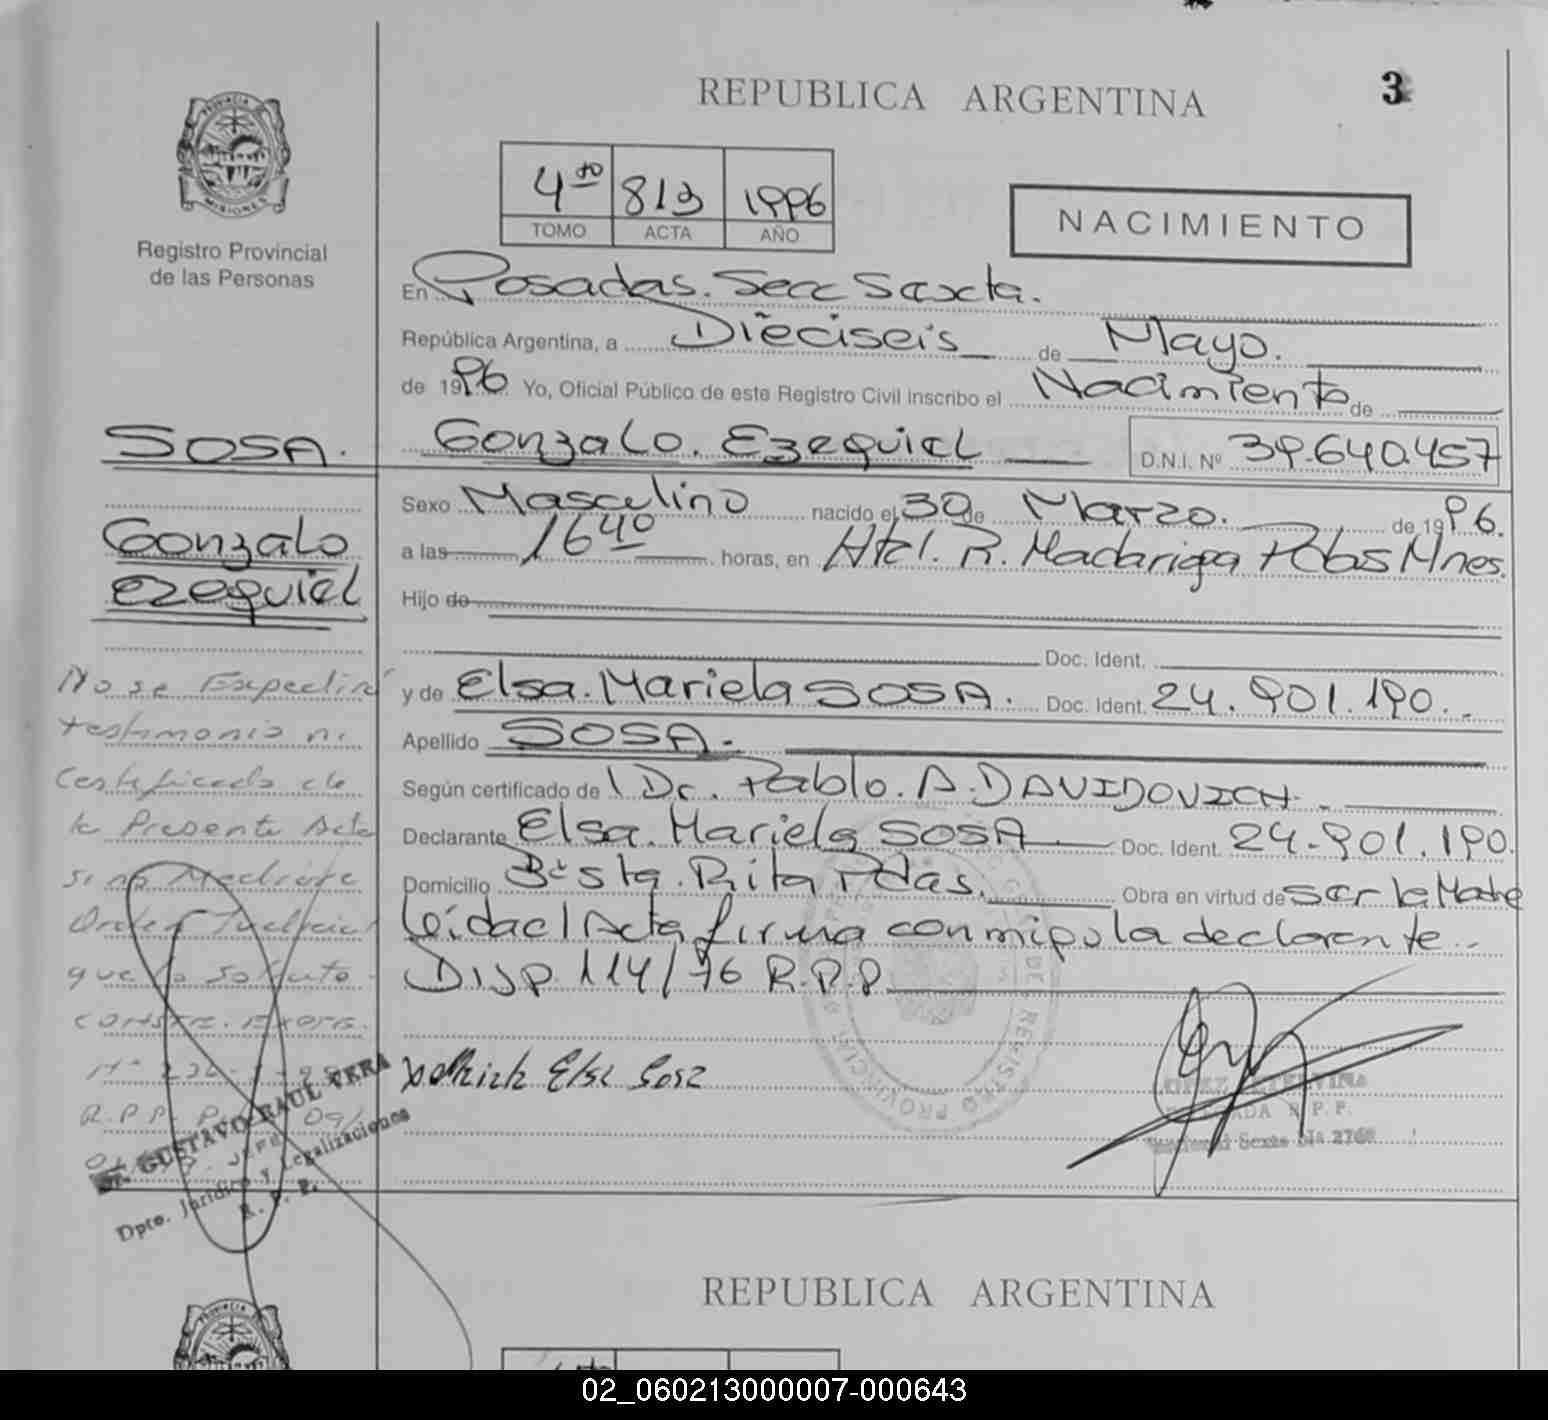 REPUBLICA ARGENTINA
3
PROVINCIA
MISIONES
Registro Provincial
de las Personas
4to 813 1996
TOMO ACTA AÑO
NACIMIENTO
En Posadas. Secc Sexta.
República Argentina, a Dieciseis de Mayo.
de 1996 Yo, Oficial Público de este Registro Civil inscribo el Nacimiento de
Gonzalo. Ezequiel D.N.I. Nº 39.640.457
SOSA.
Gonzalo
Ezequiel
Sexo Masculino nacido el 30 de Marzo. de 1996.
a las 16 40 horas, en Htal. R. Madariaga Pdas Mnes.
Hijo de
Doc. Ident.
y de Elsa. Mariela SOSA. Doc. Ident. 24.901.190.
Apellido SOSA.
Según certificado de Dr. Pablo. A. DAVIDOVICH.
Declarante Elsa. Mariela SOSA Doc. Ident. 24.901.190.
Domicilio Bº Sta. Rita Pdas. Obra en virtud de ser la Madre
leída el Acta firma conmigo la declarante.
Disp. 114/76 R.P.P.
No se Expedirá
testimonio ni
Certificado de
la Presente Acta
si no Mediante
Orden Judicial
que lo solicite
R.P.P.
GUSTAVO RAUL VERA
JEFE
Dpto. Jurídico y Legalizaciones
R. P. P.
Elsa Sosa
R. P. P.
REPUBLICA ARGENTINA
PROVINCIA
02_060213000007-000643